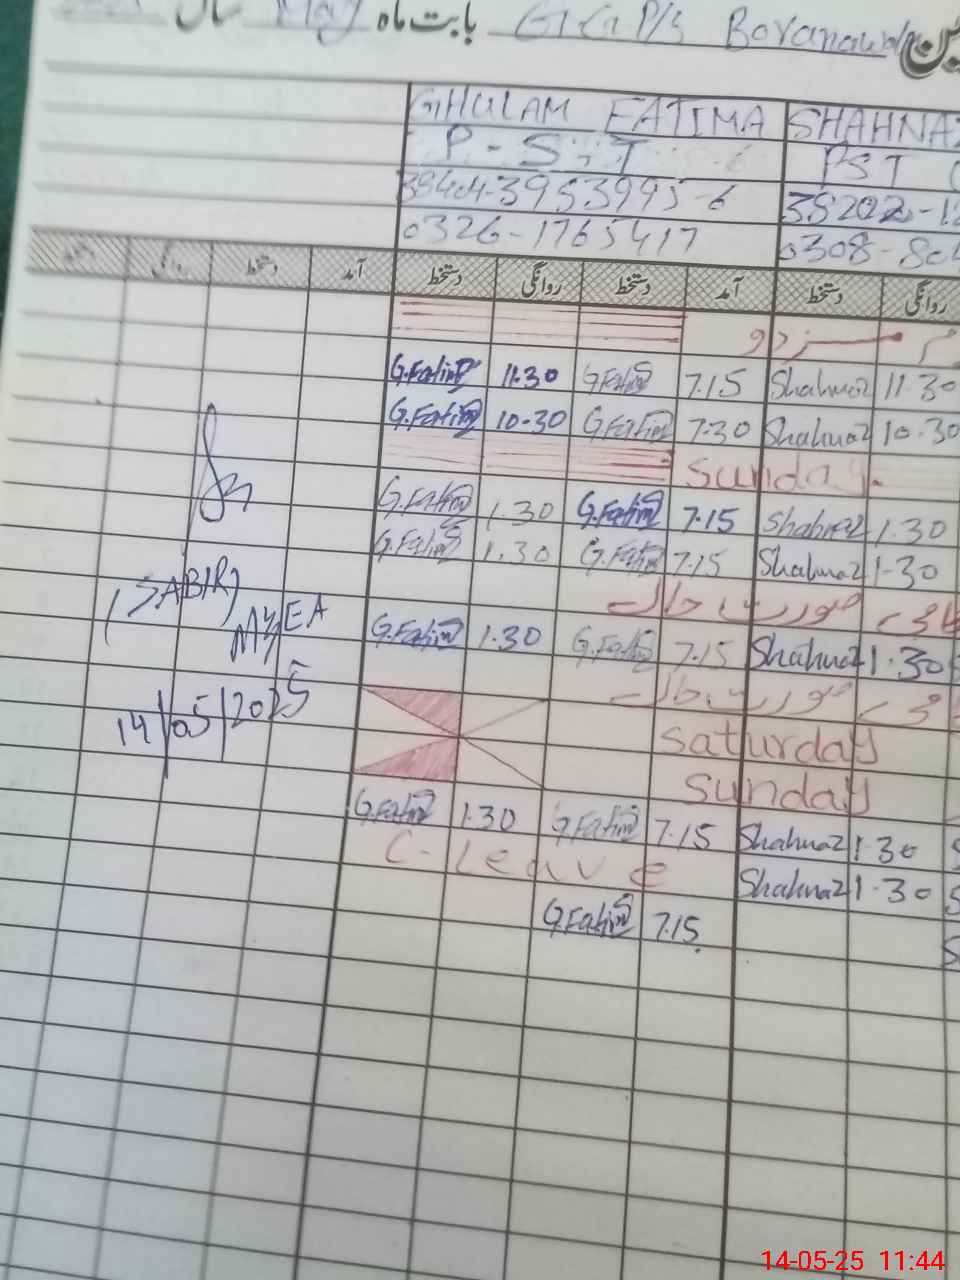 بابت ماہ May سال G.G.P/S Boranawala
GHULAM FATIMA SHAHNAZ
P-S-T PST
38404-3953995-6 38202-12
0326-1765417 0308-804
دستخط روانگی دستخط آمد دستخط روانگی دستخط آمد دستخط روانگی
G.Fatima 11.30 G.Fatima 7.15 Shahnaz 11.30
G.Fatima 10.30 G.Fatima 7.30 Shahnaz 10.30
Sunday
G.Fatima 1.30 G.Fatima 7.15 Shahnaz 1.30
G.Fatima 1.30 G.Fatima 7.15 Shahnaz 1.30
صورت حال
G.Fatima 1.30 G.Fatima 7.15 Shahnaz 1.30
صورت حال
Saturday
Sunday
G.Fatima 1.30 G.Fatima 7.15 Shahnaz 1.30
C-Leave Shahnaz 1.30
G.Fatima 7.15
(SABIR)
MEA
14/05/2025
14-05-25 11:44